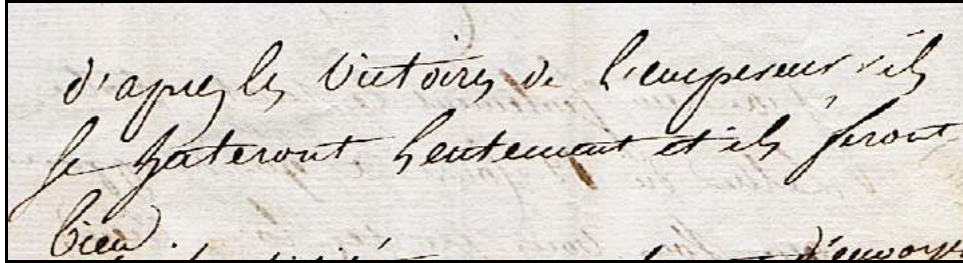 d'apres les Victoires de l'empereur, ils
se hateront lentement et ils feront
bien.
d'envoyer